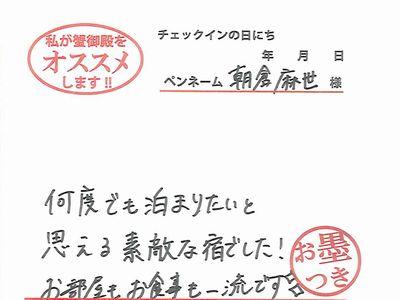 私が蟹御殿を
オススメ
します!!
チェックインの日にち
年 月 日
ペンネーム 朝倉麻世 様
何度でも泊まりたいと
思える素敵な宿でした!
お部屋もお食事も一流です
お墨
つき